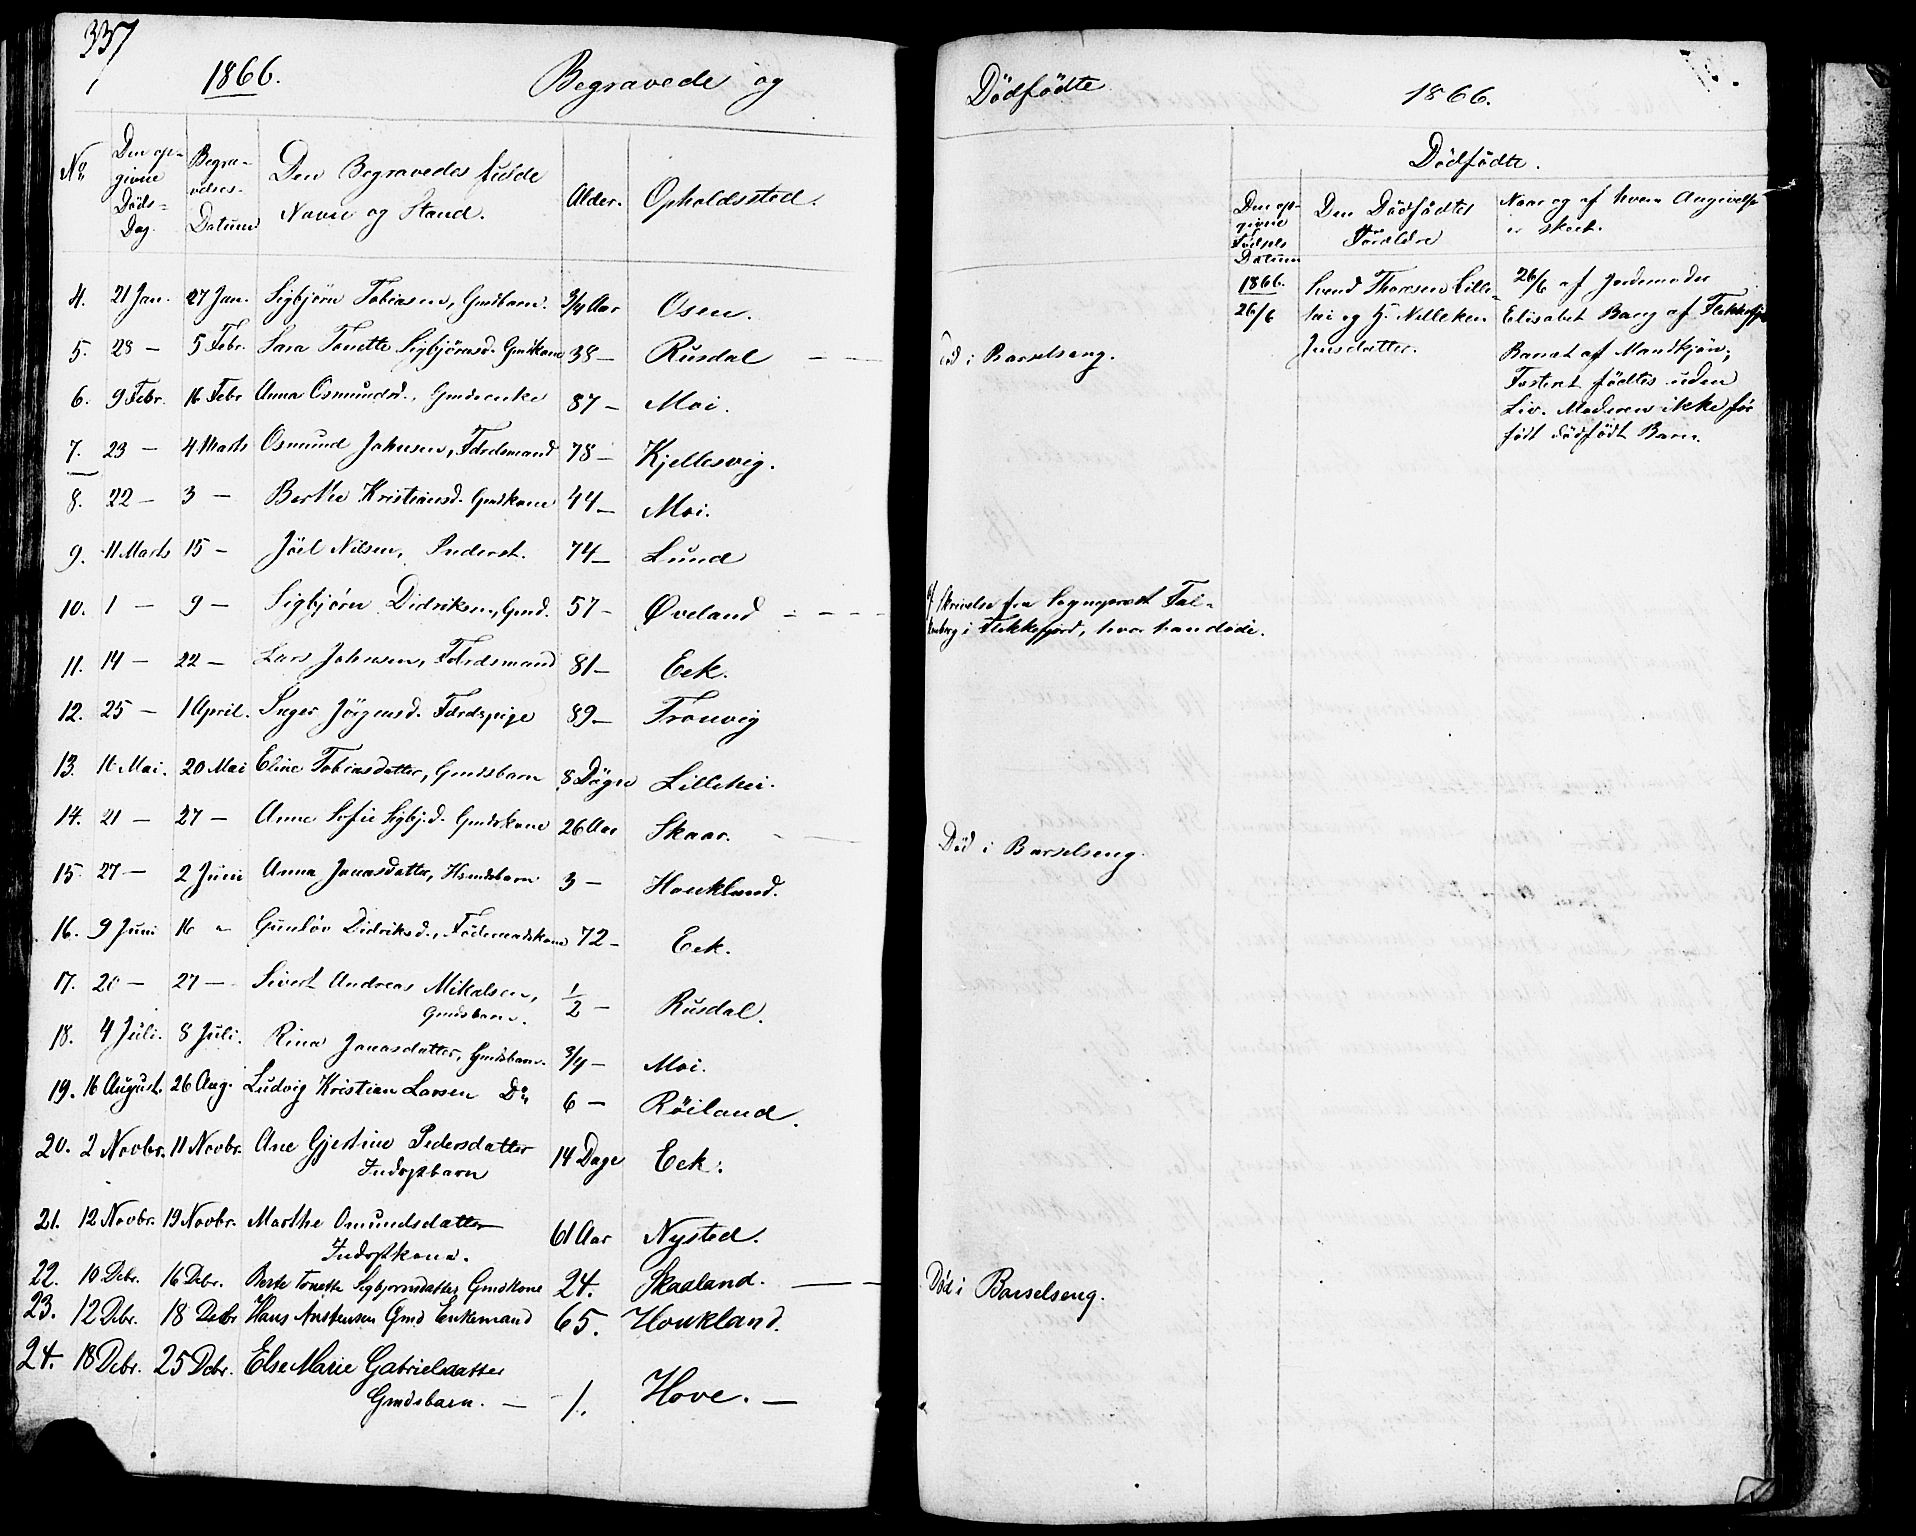 337
1866. Begravede og
No Den opgivne Døds-Dag. Begravelses-Datum Den Begravedes fulde Navn og Stand. Alder. Opholdssted.
4. 21 Jan. 27 Jan. Sigbjörn Tobiasen, Gmdbarn. 3/4 Aar Osen.
5. 28 — 5 Febr. Sara Tonette Sigbjörnsd. Gmdkone 38 — Rusdal — —
6. 9 Febr. 16 Febr Anna Osmundsd., Gmdenke 87 — Moi.
7. 23 — 4 Marts Osmund Johnsen, Fdrdsmand 78 — Kjellesvig.
8. 22 — 3 — Berthe Kristiansd. Gmdkone 44 — Moi.
9. 11 Marts 15 — Jöel Nilsen, Inderst. 74 — Lund
10. 1 — 9 — Sigbjörn Didriksen, Gmd. 57 — Øveland — — —
11. 14 — 22 — Lars Johnsen, Fdrdsmand 81 — Eek.
12. 25 — 1 April. Inger Jörgensd. Fdrdspige 89 — Tronvig
13. 11 Mai. 20 Mai Eline Tobiasdatter, Gmdsbarn 8 Dögn Lillehei.
14. 21 — 27 — Anne Sofie Sigbj.d. Gmdskone 26 Aar Skaar. — —
15. 27 — 2 Juni Anna Jonasdatter, Hsmdsbarn 3 — Houkland.
16. 9 Juni 16 — Gunlöv Didriksd., Föderaadskone 72 — Eek.
17. 20 — 27 — Sivert Andreas Mikalsen, 1/2 — Rusdal.
Gmdsbarn.
18. 4 Juli. 8 Juli. Rina Jonasdatter, Gmdsbarn. 3/4 — Moi.
19. 16 August. 26 Aug. Ludvig Kristian Larsen Do 6 — Röiland.
20. 2 Novbr. 11 Novbr. Ane Gjertine Pedersdatter 14 Dage Eek.
Indrstbarn
21. 12 Novbr. 19 Novbr. Marthe Omundsdatter 61 Aar Nysted.
Indrstkone.
22. 10 Dcbr. 16 Dcbr. Berte Tonette Sigbjørnsdatter Gmdkone 24. Skaaland. — —
23. 12 Dcbr. 18 Dcbr Hans Anstensen Gmd Enkemand 65. Houkland.
24. 18 Dcbr. 25 Dcbr. Else Marie Gabrielsdatter
Gmdsbarn. — 1. Hove. —
Dödfödte 1866.
Dödfödte.
Den opgivne Fødsels Datum Den Dödfödtes Foreldre Naar og af hvem Angivelse er skeet.
1866. Svend Thorsen Lille- 26/6 af Jordemoder
26/6 hei og H. Nilleken Elisabet Bang af Flekkefj
Jensdatter. Barnet af Mandkjön;
Fosteret födtes uden
Liv. Moderen ikke för
födt dödfödt Barn.
Död i Barselseng.
cf Skrivelse fra Sogneprest Fal-
kenberg i Flekkefjord, hvor han döde.
Död i Barselseng.
Død i Barselseng.